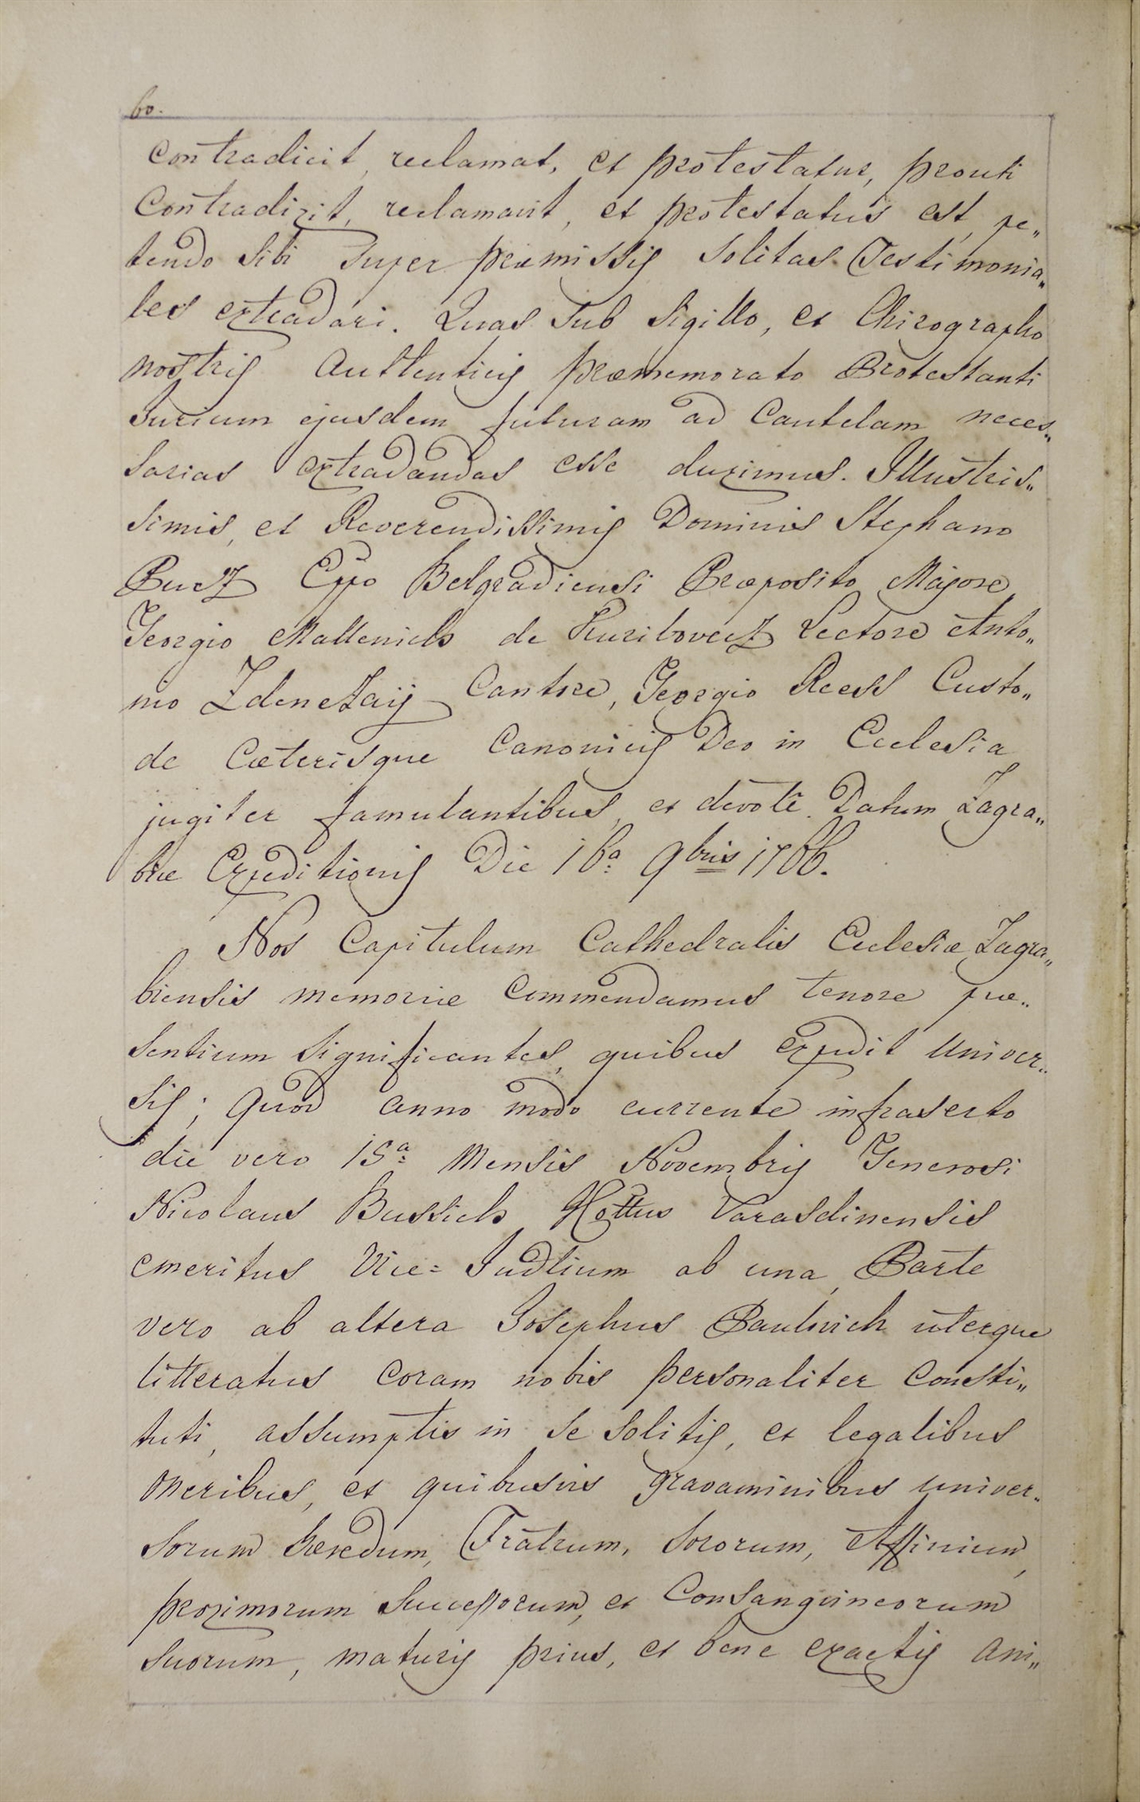 60.
contradicit, reclamat, et protestatur, prouti
Contradixit, reclamavit, et protestatus est, pe„
tendo sibi super præmissis solitas Testimonia„
les extradari. Quas sub sigillo, et Chirographo
nostris authenticis præmemorato Protestanti
Jurium ejusdem futuram ad Cautelam neces„
sarias extradandas esse duximus. Illustris„
simis, et Reverendissimis Dominis Stephano
Pucz Eppo Belgradiensi Præposito Majore,
Georgio Mallenich de Kuribovecz Lectore Anto„
nio Zdenczaÿ Cantore, Georgio Reess Custo„
de Cæterisque Canonicis Deo in Ecclesia
jugiter famulantibus, et devote. Datum Zagra„
biæ Expeditionis Die 16a: 9bris 1766.
Nos Capitulum Cathedralis Ecclesiæ Zagra„
biensis memoriæ Commendamus tenore præ„
sentium significantes, quibus expedit Univer„
sis; Quod anno modo currente infraserto
die vero 15a: Mensis Novembris Generosi
Nicolaus Bussich Cottus Varasdinensis
emeritus Vice= Judlium ab una, Parte
vero ab altera Josephus Paulovich uterque
litteratus coram nobis personaliter Consti„
tuti, assumptis in se solitis, et legalibus
Oneribus, et quibusvis gravaminibus univer„
sorum hæredum, Fratrum, Sororum, Affinium,
proximorum Successorum, et Consanguineorum
suorum, maturis prius, et bene exactis ani„